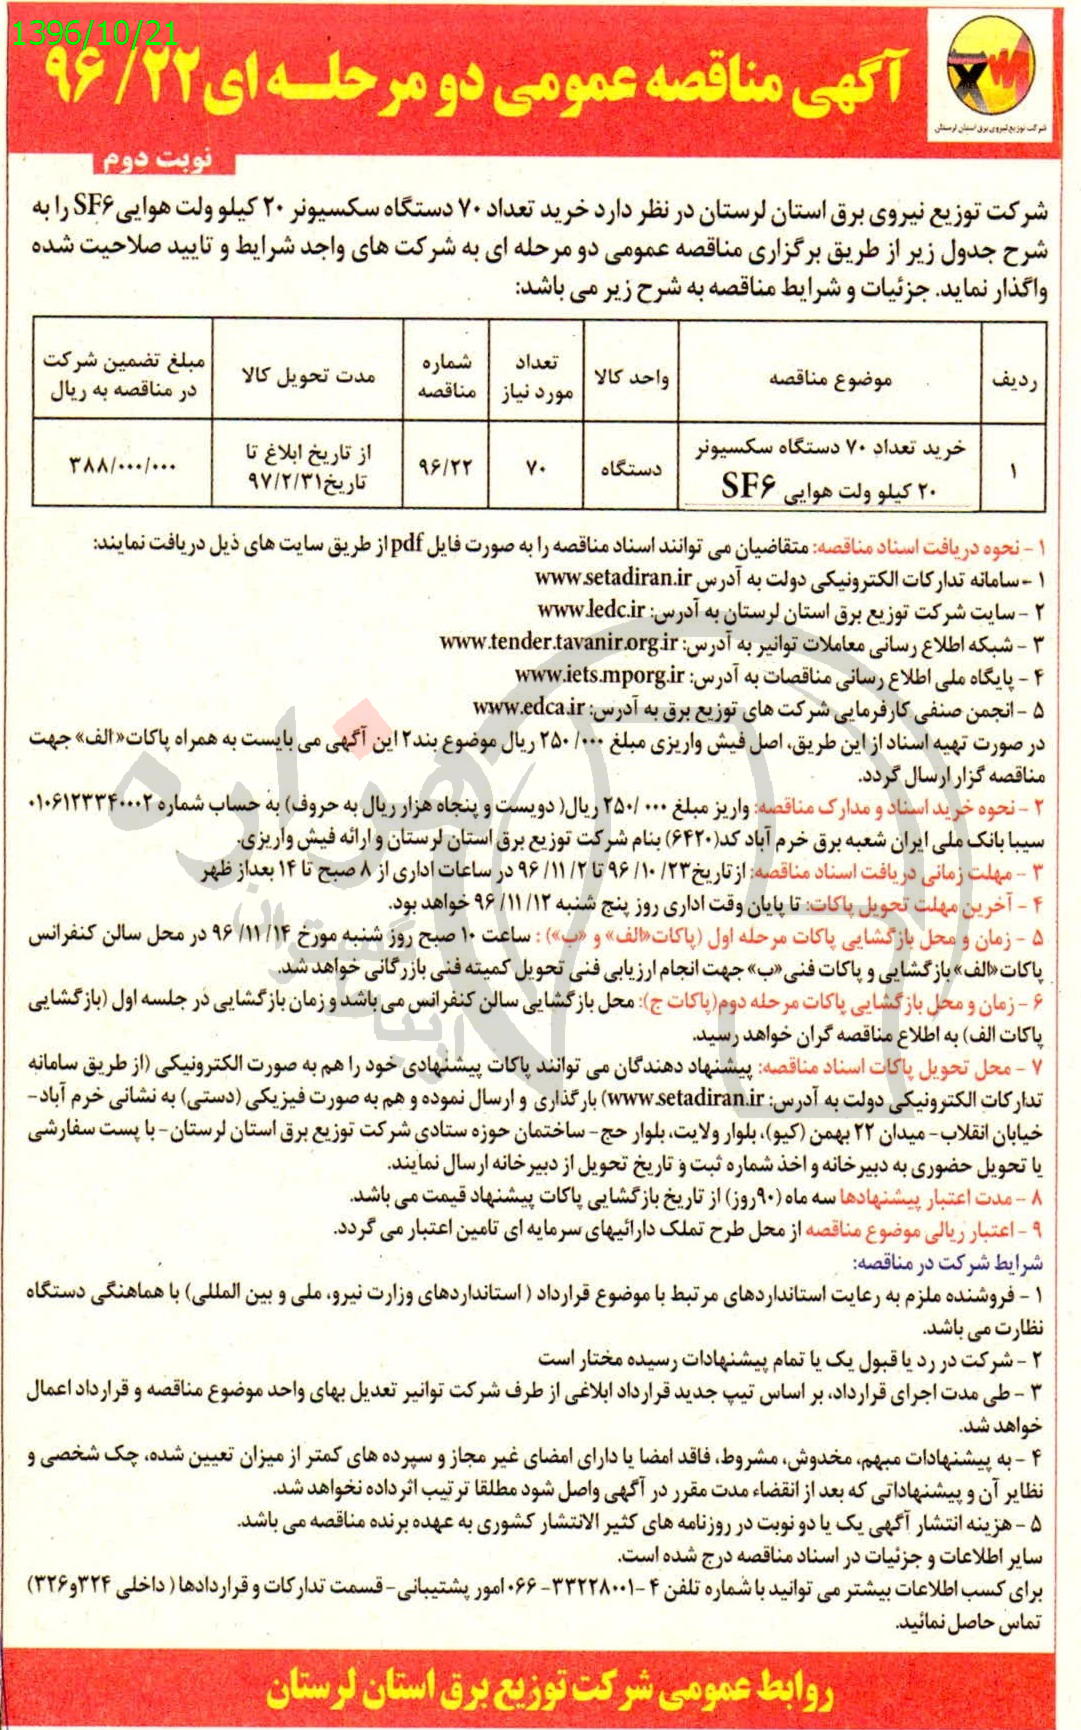 1396/10/21
شرکت توزیع نیروی برق استان لرستان
آگهی مناقصه عمومی دو مرحله ای ۹۶/۲۲
نوبت دوم
شرکت توزیع نیروی برق استان لرستان در نظر دارد خرید تعداد ۷۰ دستگاه سکسیونر ۲۰ کیلو ولت هوایی SF۶ را به
شرح جدول زیر از طریق برگزاری مناقصه عمومی دو مرحله ای به شرکت های واجد شرایط و تایید صلاحیت شده
واگذار نماید. جزئیات و شرایط مناقصه به شرح زیر می باشد:
ردیف
موضوع مناقصه
واحد کالا
تعداد
مورد نیاز
شماره
مناقصه
مدت تحویل کالا
مبلغ تضمین شرکت
در مناقصه به ریال
۱
خرید تعداد ۷۰ دستگاه سکسیونر
۲۰ کیلو ولت هوایی SF۶
دستگاه
۷۰
۹۶/۲۲
از تاریخ ابلاغ تا
تاریخ۹۷/۲/۳۱
۳۸۸/۰۰۰/۰۰۰
۱ - نحوه دریافت اسناد مناقصه: متقاضیان می توانند اسناد مناقصه را به صورت فایل pdf از طریق سایت های ذیل دریافت نمایند:
۱ - سامانه تدارکات الکترونیکی دولت به آدرس www.setadiran.ir
۲ - سایت شرکت توزیع برق استان لرستان به آدرس: www.ledc.ir
۳ - شبکه اطلاع رسانی معاملات توانیر به آدرس: www.tender.tavanir.org.ir
۴ - پایگاه ملی اطلاع رسانی مناقصات به آدرس: www.iets.mporg.ir
۵ - انجمن صنفی کارفرمایی شرکت های توزیع برق به آدرس: www.edca.ir
در صورت تهیه اسناد از این طریق، اصل فیش واریزی مبلغ ۲۵۰/۰۰۰ ریال موضوع بند۲ این آگهی می بایست به همراه پاکات«الف» جهت
مناقصه گزار ارسال گردد.
۲ - نحوه خرید اسناد و مدارک مناقصه: واریز مبلغ ۲۵۰/۰۰۰ ریال( دویست و پنجاه هزار ریال به حروف) به حساب شماره ۰۱۰۶۱۲۳۳۴۰۰۰۲
سیبا بانک ملی ایران شعبه برق خرم آباد کد(۶۴۲۰) بنام شرکت توزیع برق استان لرستان و ارائه فیش واریزی.
۳ - مهلت زمانی دریافت اسناد مناقصه: از تاریخ۹۶/۱۰/۲۳ تا ۹۶/۱۱/۲ در ساعات اداری از ۸ صبح تا ۱۴ بعداز ظهر
۴ - آخرین مهلت تحویل پاکات: تا پایان وقت اداری روز پنج شنبه ۹۶/۱۱/۱۲ خواهد بود.
۵ - زمان و محل بازگشایی پاکات مرحله اول (پاکات«الف» و «ب») : ساعت ۱۰ صبح روز شنبه مورخ ۹۶/۱۱/۱۴ در محل سالن کنفرانس
پاکات«الف» بازگشایی و پاکات فنی«ب» جهت انجام ارزیابی فنی تحویل کمیته فنی بازرگانی خواهد شد.
۶ - زمان و محل بازگشایی پاکات مرحله دوم(پاکات ج): محل بازگشایی سالن کنفرانس می باشد و زمان بازگشایی در جلسه اول (بازگشایی
پاکات الف) به اطلاع مناقصه گران خواهد رسید.
۷ - محل تحویل پاکات اسناد مناقصه: پیشنهاد دهندگان می توانند پاکات پیشنهادی خود را هم به صورت الکترونیکی (از طریق سامانه
تدارکات الکترونیکی دولت به آدرس: www.setadiran.ir) بارگذاری و ارسال نموده و هم به صورت فیزیکی (دستی) به نشانی خرم آباد-
خیابان انقلاب- میدان ۲۲ بهمن (کیو)، بلوار ولایت، بلوار حج- ساختمان حوزه ستادی شرکت توزیع برق استان لرستان- با پست سفارشی
یا تحویل حضوری به دبیرخانه و اخذ شماره ثبت و تاریخ تحویل از دبیرخانه ارسال نمایند.
۸ - مدت اعتبار پیشنهادها سه ماه (۹۰روز) از تاریخ بازگشایی پاکات پیشنهاد قیمت می باشد.
۹ - اعتبار ریالی موضوع مناقصه از محل طرح تملک دارائیهای سرمایه ای تامین اعتبار می گردد.
شرایط شرکت در مناقصه:
۱ - فروشنده ملزم به رعایت استانداردهای مرتبط با موضوع قرارداد ( استانداردهای وزارت نیرو، ملی و بین المللی) با هماهنگی دستگاه
نظارت می باشد.
۲ - شرکت در رد یا قبول یک یا تمام پیشنهادات رسیده مختار است
۳ - طی مدت اجرای قرارداد، بر اساس تیپ جدید قرارداد ابلاغی از طرف شرکت توانیر تعدیل بهای واحد موضوع مناقصه و قرارداد اعمال
خواهد شد.
۴ - به پیشنهادات مبهم، مخدوش، مشروط، فاقد امضا یا دارای امضای غیر مجاز و سپرده های کمتر از میزان تعیین شده، چک شخصی و
نظایر آن و پیشنهاداتی که بعد از انقضاء مدت مقرر در آگهی واصل شود مطلقا ترتیب اثر داده نخواهد شد.
۵ - هزینه انتشار آگهی یک یا دو نوبت در روزنامه های کثیر الانتشار کشوری به عهده برنده مناقصه می باشد.
سایر اطلاعات و جزئیات در اسناد مناقصه درج شده است.
برای کسب اطلاعات بیشتر می توانید با شماره تلفن ۴ - ۳۳۲۲۸۰۰۱ - ۰۶۶ امور پشتیبانی- قسمت تدارکات و قراردادها ( داخلی ۳۲۴و۳۲۶)
تماس حاصل نمائید.
روابط عمومی شرکت توزیع برق استان لرستان